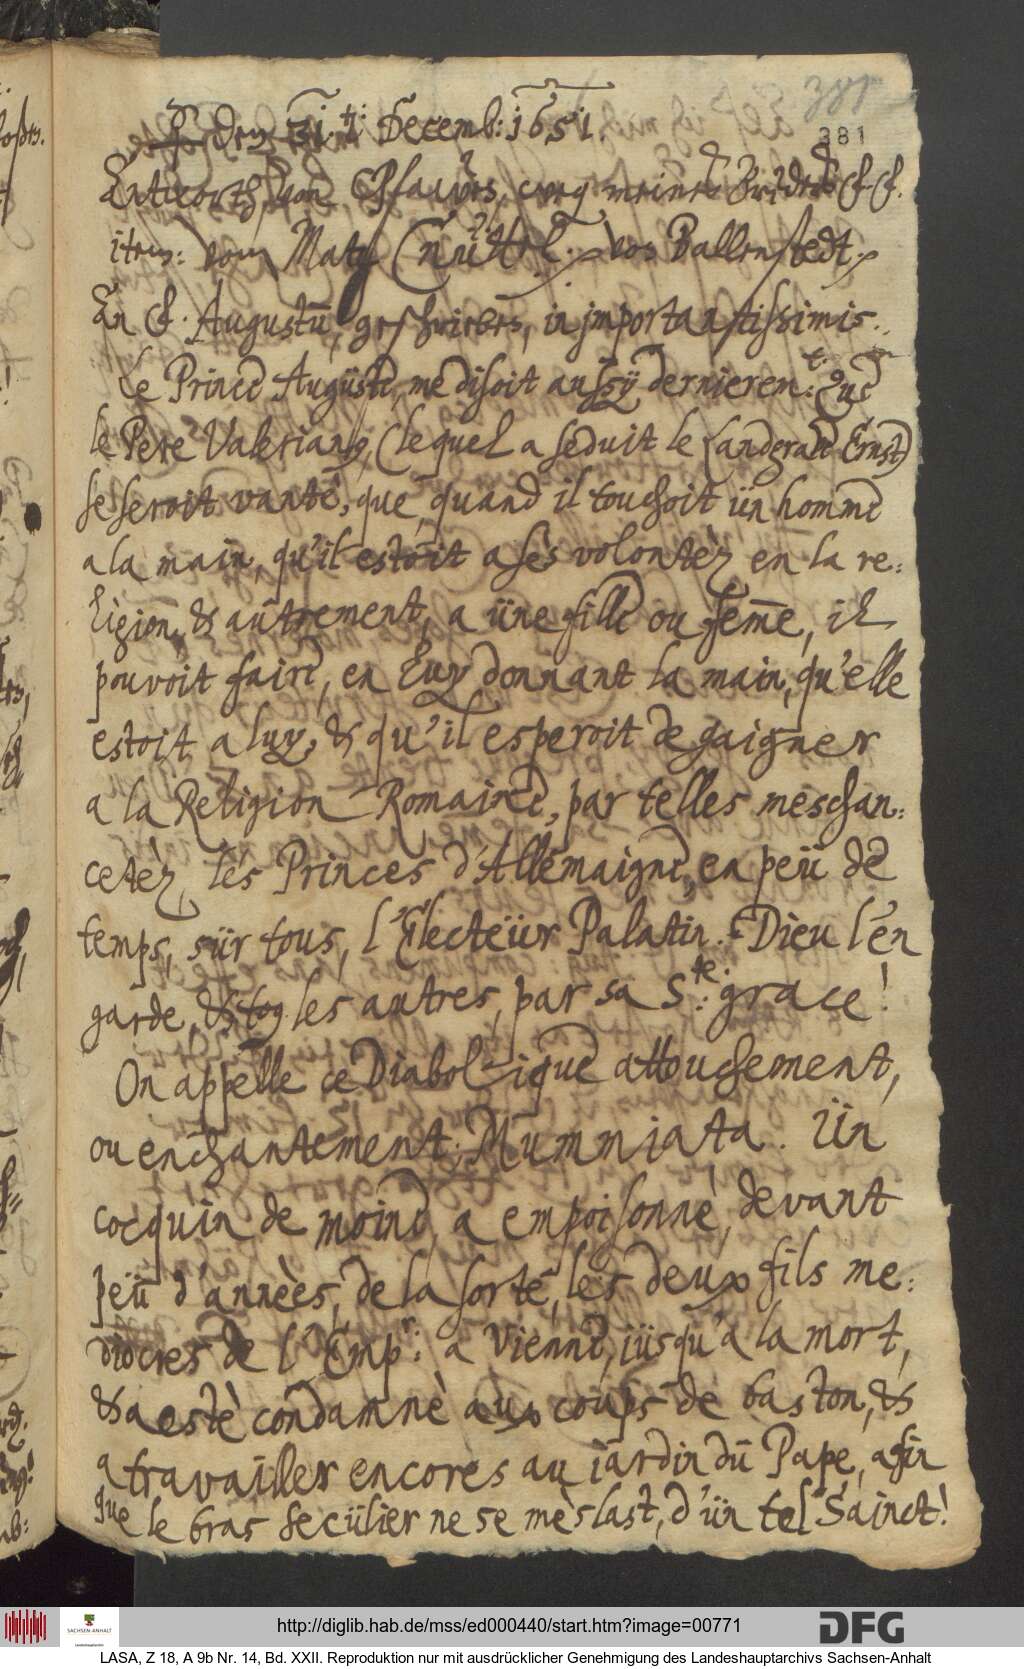 381
381
☿ den 31. t: Decemb: 1651.
Antworth, von Pfawes, weg meines Bruders F. F.
item: vom Matz Cnüttel, von Ballenstedt.
An F. Augustum, geschrieben, in importantissimis.
Le Prince Auguste, me disoit aussy dernieremt: Que
le Pere Valerianus, (lequel a seduit le Landgrave Ernst)
se seroit vanté, que, quand il touchoit ün homme
a la main, qu'il estoit a ses volontèz en la re:
ligion, & autrement, a üne fille ou feme, il
pouvoit faire, en luy donnant la main, qu'elle
estoit a luy, & qu'il esperoit de gaigner
a la Religion Romaine, par telles meschan:
cetèz, lés Princes d'Allemaigne, en peü de
temps, sür tous, l'Electeür Palatin. Dieu l'en
garde, & tous les autres, par sa Ste: grace!
On appelle ce Diabolique attouchement,
ou enchantement: Mumniata. Ün
cocquin de moine, a empoisonnè, devant
peü d'annèes, de la sorte, les deux fils me:
diocres de l'Empr: a Vienne, jüsqu'a la mort,
& a estè condamnè aux coups de baston, &
a travailler encores au jardin dü Pape, afin
que le bras secülier ne se mèslast, d'ün tel Sainct!
http://diglib.hab.de/mss/ed000440/start.htm?image=00771
SACHSEN-ANHALT
DFG
LASA, Z 18, A 9b Nr. 14, Bd. XXII. Reproduktion nur mit ausdrücklicher Genehmigung des Landeshauptarchivs Sachsen-Anhalt